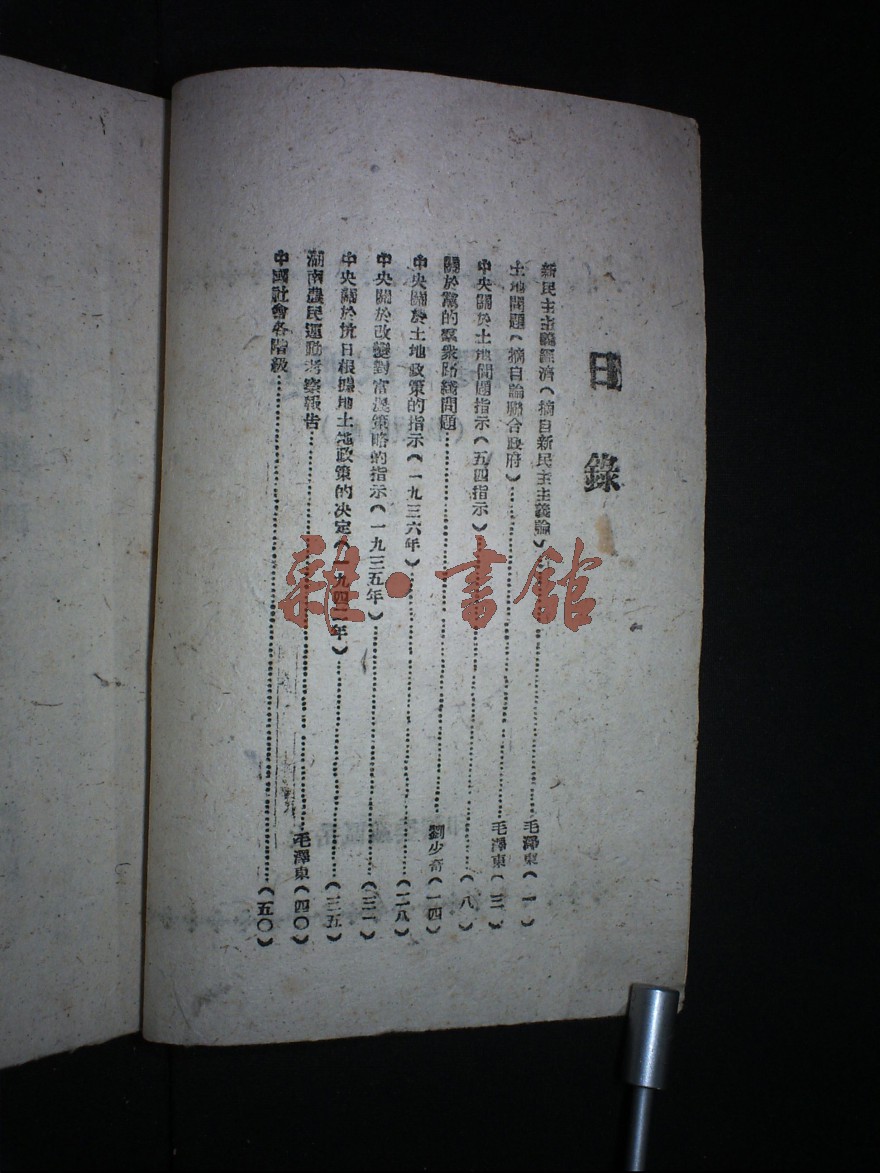 目錄
新民主主義經濟（摘自新民主主義論）……毛澤東（一）
土地問題（摘自論聯合政府）……毛澤東（三）
中央關於土地問題指示（五四指示）……（八）
關於黨的羣衆路綫問題……劉少奇（一四）
中央關於土地政策的指示（一九三六年）……（二八）
中央關於改變對富農策略的指示（一九三五年）……（三一）
中央關於抗日根據地土地政策的决定（一九四二年）……（三五）
湖南農民運動考察報告……毛澤東（四〇）
中國社會各階級……（五〇）
雜·書館